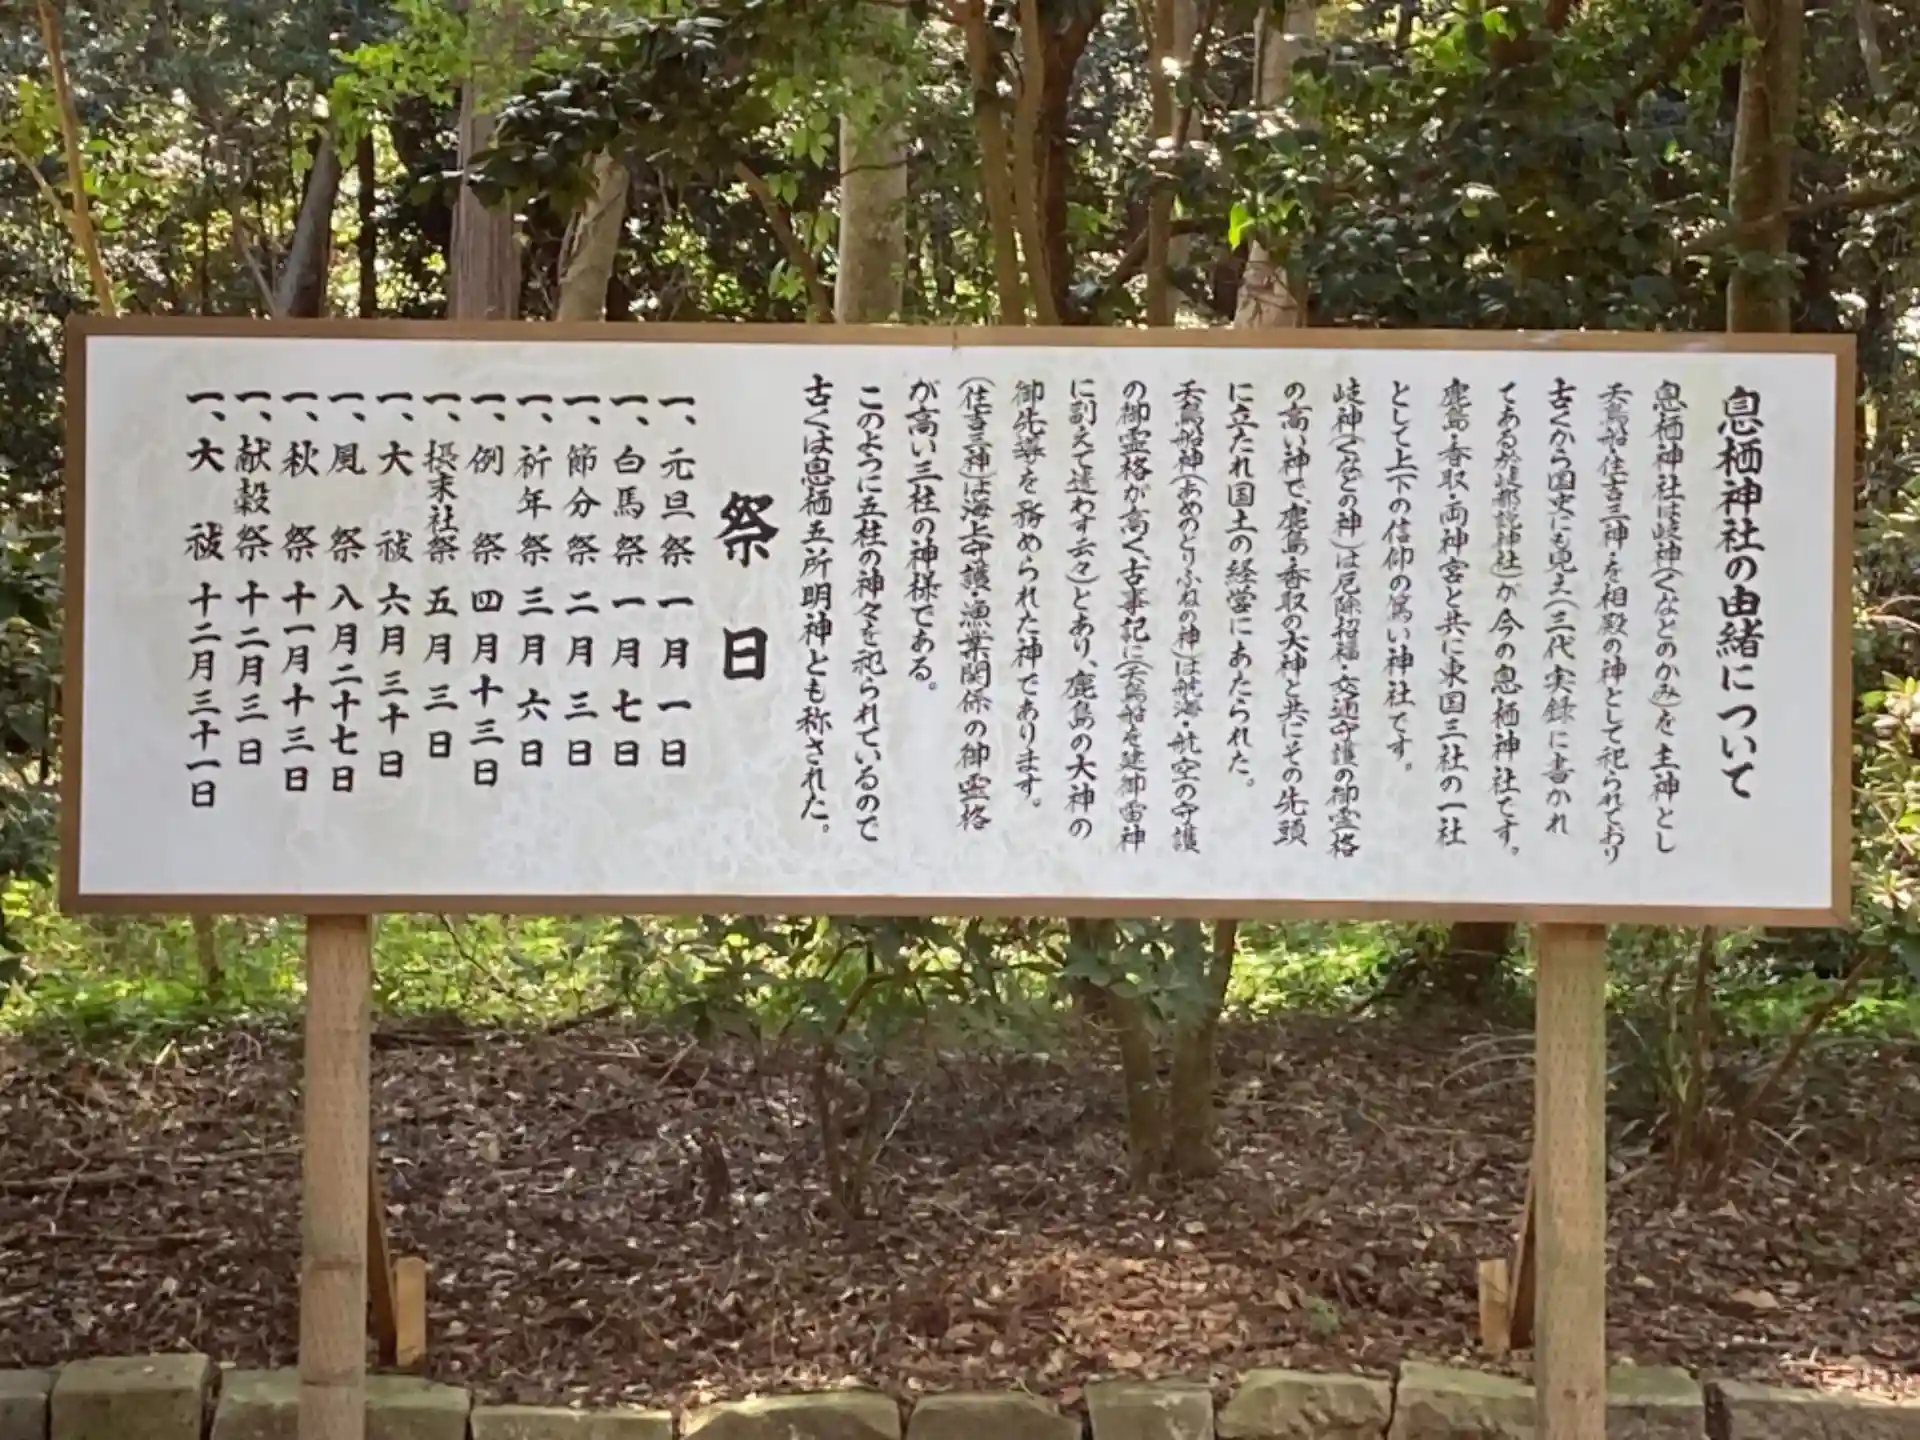 息栖神社の由緒について
息栖神社は岐神(くなどのかみ)を主神とし
天鳥船・住吉三神を相殿の神として祀られており
古くから国史にも見え(三代実録に書かれ
てある於岐都説神社)が今の息栖神社です。
鹿島・香取・両神宮と共に東国三社の一社
として上下の信仰の篤い神社です。
岐神(くなどの神)は厄除招福・交通守護の御霊格
の高い神で、鹿島・香取の大神と共にその先頭
に立たれ国土の経営にあたられた。
天鳥船神(あめのとりふねの神)は航海・航空の守護
の御霊格が高く、古事記に(天鳥船を建御雷神
に副えて遣わす云々)とあり、鹿島の大神の
御先導を務められた神であります。
(住吉三神)は海上守護・漁業関係の御霊格
が高い三柱の神様である。
このように五柱の神々を祀られているので
古くは息栖五所明神とも称された。
祭日
一、元旦祭 一月一日
一、白馬祭 一月七日
一、節分祭 二月三日
一、祈年祭 三月六日
一、例祭 四月十三日
一、摂末社祭 五月三日
一、大祓 六月三十日
一、風祭 八月二十七日
一、秋祭 十一月十三日
一、献穀祭 十二月三日
一、大祓 十二月三十一日